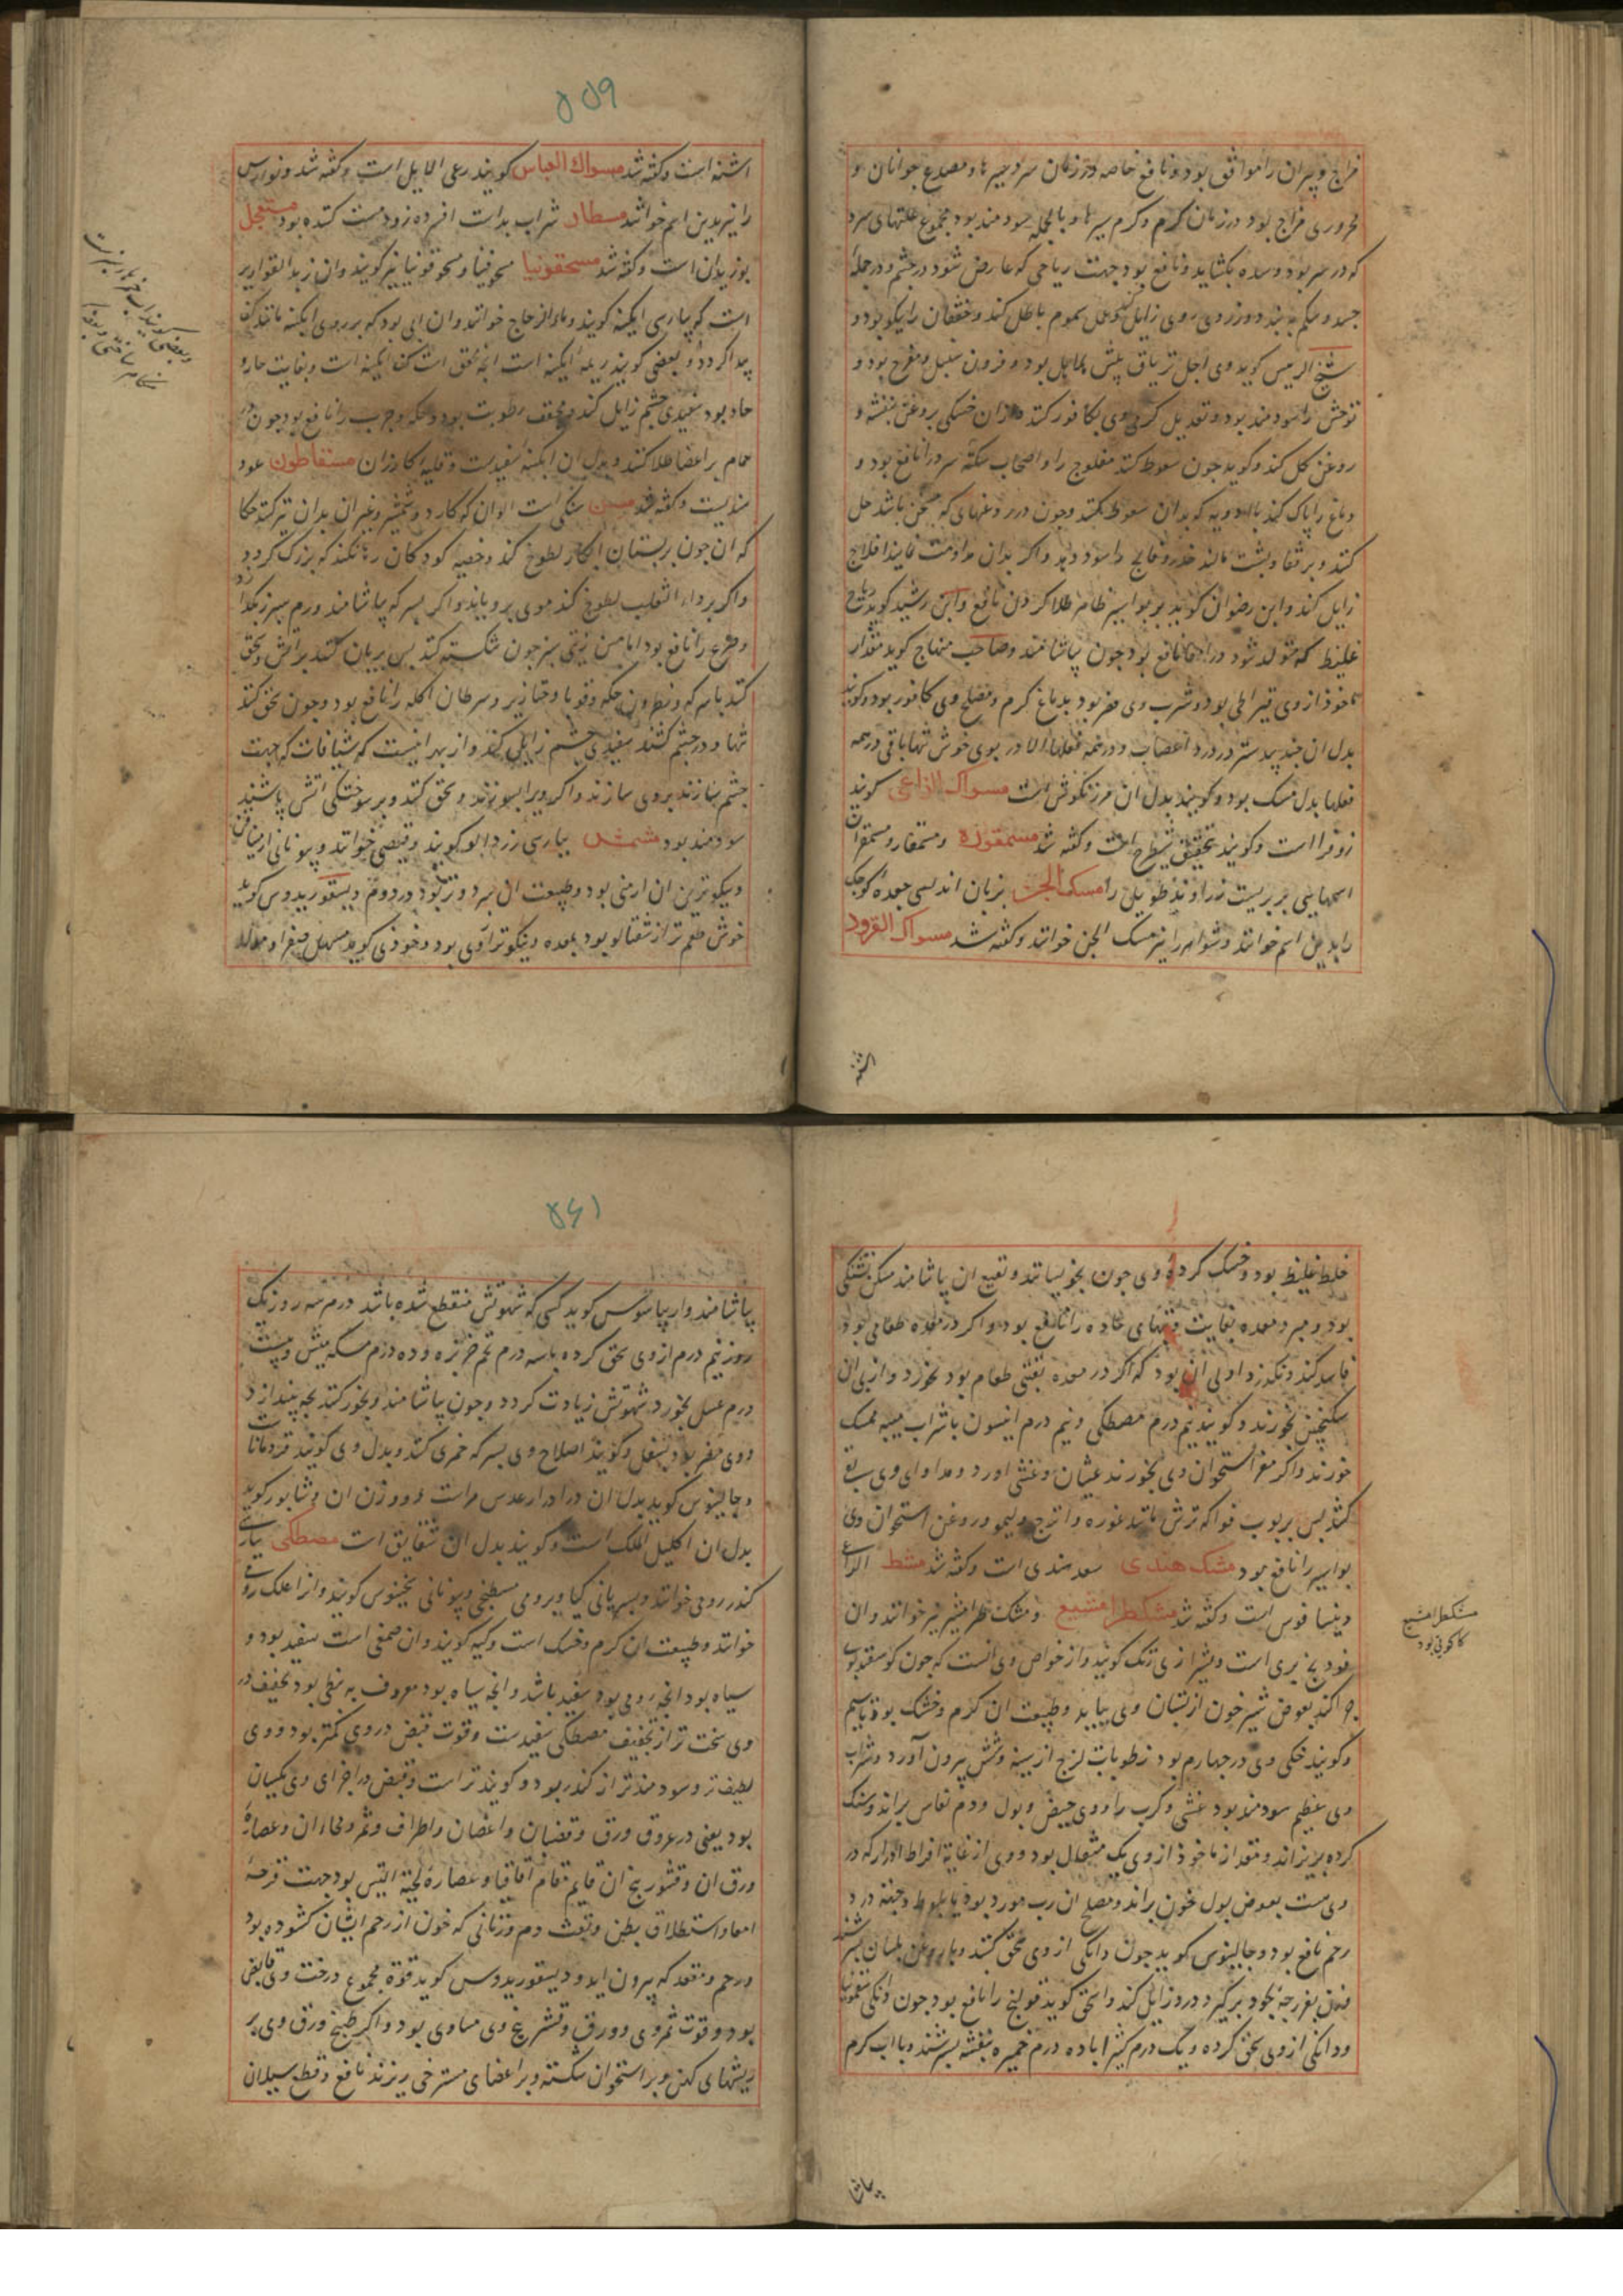 مزاج و پیران را موافق بود و نافع خاصه در زمان سرد و سیر ها و مصدع جوانان و
محروری مزاج بود در زمان کرم و کرم سیر ها و بالجمله سودمند بود مجموع علتهای سرد
که در سر بود و سده بکشاید و نافع بود جهت ریاحی که عارض شود در چشم و در جمله
جسد و شکم به بندد و زردی روی زایل کند و عمل سموم باطل کند و خفقان را نیکو بود و
شیخ الرییس کوید وی اجل تریاق بیش بلاهل بود و قرون سنبل و مفرح بود و
توحش را سودمند بود و تعدیل کرمی وی بکافور کنند و ازان خشکی بروغن بنفشه و
روغن کل کند و کوید چون سعوط کنند مفلوج را و اصحاب سکته سرد را نافع بود و
دماغ را پاک کند با ادویه که بدان سعوط کنند و چون در روغنهای که مسخن باشد حل
کنند و بر قفا و پشت مالند خدر و فالج را سود دهد و اکر بدان مداومت نمایند افلاج
زایل کند و ابن رضوان کوید بر بواسیر ظاهر طلا کردن نافع و ابن رشید کوید ریاح
غلیظ که متولد شود در امعا نافع بود چون بیاشامند و صاحب منهاج کوید مقدار
ماخوذ از وی قیراطی بود و شرب وی مضر بود بدماغ کرم و مصلح وی کافور بود و کویند
بدل ان جند بیدستر در درد اعصاب و در همه فعلها الا در بوی خوش تنها باقی در همه
فعلها بدل مسک بود و کویند بدل ان مرزنکوش است مسواک الراعی کویند
زوفرا است و کویند بتحقیق شیطرج است و کفته شد مسمقوره و مستمقار و مسمقران
اسمهایی بربریست زراوند طویل را مسک الجن بزبان اندلسی جعده کوچک
را بدین اسم خوانند و شواصرا را نیز مسک الجن خوانند و کفته شد مسواک القرود
اشنه
۵۵۹
اشنه است و کفته شد مسواک العباس کویند رعی الابل است و کفته شد و نوارس
را نیز بدین اسم خوانند مسطار شراب بد است افسرده زود مست کننده بود مستعجل
بوزیدان است و کفته شد مسحقونیا مسحوقنیا و مسحوقونیا نیز کویند وان زبد القواریر
است که بپارسی ابکینه کویند و ماء الزجاج خوانند وان ابی بود که بر روی ابکینه مانند کف
پیدا کردد و بعضی کویند ریمه ابکینه است انچه محقق است کف ابکینه است و بغایت حار و
حاد بود سفیدی چشم زایل کند و مجفف رطوبت بود و حکه و جرب را نافع بود چون در
حمام بر اعضا طلا کنند و بدل ان ابکینه سفیدست و قلیه کازران مستقاطون عود
هندیست و کفته شد مسن سنکی است الوان که کارد و شمشیر و غیر ان بدان تیز کنند حکا
که ان چون بر پستان ابکار لطوخ کند و خصیه کودکان رها نکند که بزرک کردد
واکر بر داء الثعلب لطوخ کنند موی برویاند واکر بسرکه بیاشامند ورم سپرز بکدازد
و صرع را نافع بود اما مسن زیتی سبز چون شکسته کنند پس بریان کنند بر اتش و سحق
کنند با سرکه و نطرون حکه و قوبا و خنازیر و سرطان اکله را نافع بود و چون سحق کنند
تنها و در چشم کشند سفیدی چشم زایل کند و از بهر اینست که شیافات که جهت
چشم سازند بروی سازند واکر ویرا بسوزند و سحق کنند و بر سوختکی اتش پاشند
سودمند بود مشمش بپارسی زرد الو کویند و قیصی خوانند و بیونانی ارمیناقن
و نیکوترین ان ارمنی بود و طبیعت ان سرد و تر بود در دوم و دیسقوریدوس کوید
خوش طعم تر از شفتالو بود بمعده و نیکوتر ازوی بود و خوذی کوید مسهل صفرا و مولد
خلط غلیظ بود و خشک کرده وی چون بخیسانند و نقیع ان بیاشامند مسکن تشنکی
بود و مبرد معده بغایت و تبهای حاده را نافع بود واکر در معده طعامی بود
فاسد کند و نکذرد و اولی ان بود که اکر در معده بقیتی طعام بود نخورد و از پی ان
سکنجبین بخورند و کویند نیم درم مصطکی و نیم درم انیسون باشراب میبه ممسک
خورند واکر مغز استخوان وی بخورند غثیان و غشی اورد و مداوای وی بقی
کنند پس بربوب فواکه ترش مانند غوره و اترج و لیمو و روغن استخوان وی
بواسیر را نافع بود مشک هندی سعد هندی است و کفته شد مشط الراعی
دینسا قوس است و کفته شد مشکطرامشیع و مشک طرامشیر نیز خوانند وان
فودنج بری است و بشیرازی زنک کویند و از خواص وی انست که چون کوسفند بوی
چرا کند بعوض شیر خون از پستان وی بیاید و طبیعت ان کرم و خشک بود در سیم
وکویند خشکی وی در چهارم بود رطوبات لزج از سینه و شش بیرون آورد و شراب
وی عظیم سودمند بود غشی و کرب را ووی حیض و بول و دم نفاس براند و سنک
کرده بریزاند و مقدار ماخوذ از وی یک مثقال بود ووی از غایة افراط ادرار که در
وی هست بعوض بول خون براند و مصلح ان رب مورد بود یا بلوط و جفته در درد
رحم نافع بود و جالینوس کوید چون دانکی از وی سحق کنند و با روغن بلسان بسرشند
زن بفرزجه بخود برکیرد درد زایل کند و اسحق کوید قولنج را نافع بود چون دانکی سقمونیا
ودانکی از وی سحق کرده و یک درم کثیرا با ده درم خمیره بنفشه بسرشند و با اب کرم
مشکطرامشیع
کاکوتی بود
بیاشا
۵۶۱
بیاشامند واریباسوس کوید کسی که شهوتش منقطع شده باشد درم سه روز یک
روز نیم درم از وی سحق کرده با سه درم تخم خربزه و ده درم مسکه میش و بیست
درم عسل بخورد شهوتش زیادت کردد و چون بیاشامند و بخور کنند بچه بیندازد
ووی مضر بود بسفل و کویند اصلاح وی بسرکه خمری کنند و بدل وی کویند قردمانا
و جالینوس کوید بدل ان در ادرار عدس مر است و دو وزن ان و شابور کوید
بدل ان اکلیل الملک است و کویند بدل ان شقایق است مصطکی بپارسی
کندر رومی خوانند و بسریانی کیا و برومی مسطنجی و بیونانی سخینوس کویند و انرا علک رومی
خوانند و طبیعت ان کرم و خشک است و کیه کویند وان صمغی است سفید بود و
سیاه بود انچه رومی بود سفید باشد و انچه سیاه بود معروف به نبطی بود تجفیف در
وی سخت تر از تجفیف مصطکی سفیدست و قوت قبض در وی کمتر بود ووی
لطیف تر و سودمندتر از کندر بود و کویند تر است و قبض در اجزای وی یکسان
بود یعنی در عروق ورق و قضبان و اغصان و اطراف و ثمر و لحاء ان و عصاره
ورق ان و قشور بیخ ان قایم مقام اقاقیا و عصاره لحیة التیس بود جهت قرحه
امعا و استطلاق بطن و نفث دم و زنانی که خون از رحم ایشان کشوده بود
و رحم و مقعد که بیرون اید و دیسقوریدوس کوید قوة مجموع درخت وی قابض
بود و قوت ثمر وی و ورق و قشر بیخ وی مساوی بود واکر طبیخ ورق وی بر
ریشهای کهن و بر استخوان شکسته و بر اعضای مسترخی ریزند نافع و قطع سیلان